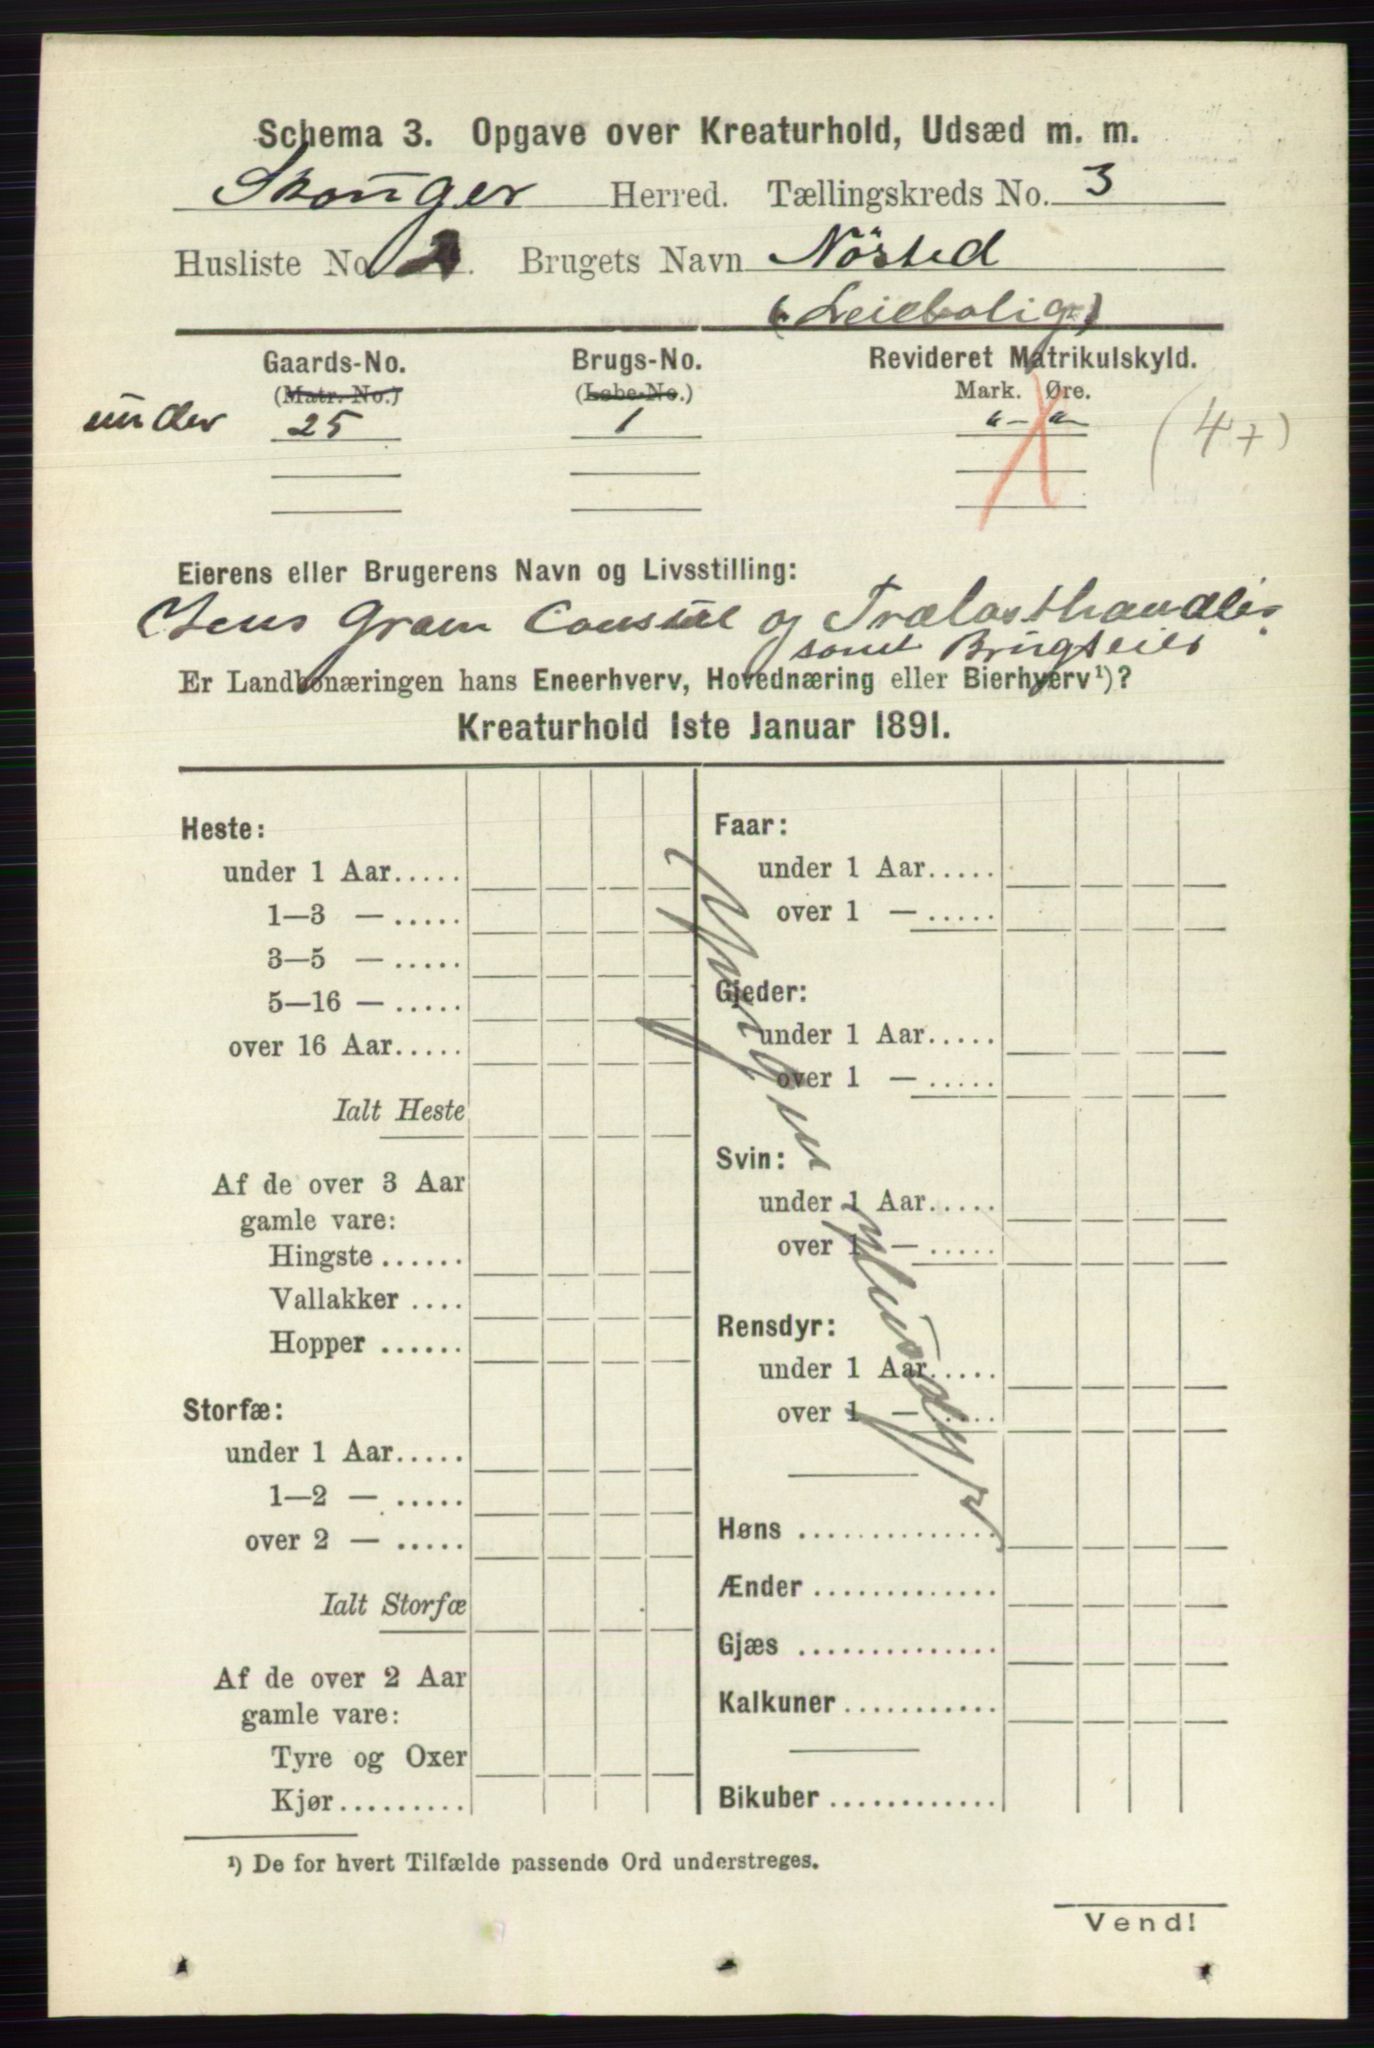 Schema 3. Opgave over Kreaturhold, Udsæd m. m.
Skouger Herred. Tællingskreds No. 3
Husliste No. 2. Brugets Navn Nösted
(Leiebolig)
Gaards-No. Brugs-No. Revideret Matrikulskyld.
(Matr. No.) (Løbe-No.) Mark. Øre.
under 25 1 "-"- (4+)
Eierens eller Brugerens Navn og Livsstilling:
Jens Gram Consul og Trælasthandler
samt Brugseier
Er Landbonæringen hans Eneerhverv, Hovednæring eller Bierhverv¹)?
Kreaturhold 1ste Januar 1891.
Heste:
under 1 Aar.....
1—3 — .....
3—5 — .....
5—16 — .....
over 16 Aar.....
Ialt Heste
Af de over 3 Aar
gamle vare:
Hingste ......
Vallakker ....
Hopper ......
Storfæ:
under 1 Aar.....
1—2 — .....
over 2 — .....
Ialt Storfæ
Af de over 2 Aar
gamle vare:
Tyre og Oxer
Kjør.........
Faar:
under 1 Aar.....
over 1 — .....
Gjeder:
under 1 Aar.....
over 1 — .....
Svin:
under 1 Aar.....
over 1 — .....
Rensdyr:
under 1 Aar.....
over 1 — .....
Høns ..............
Ænder .............
Gjæs ..............
Kalkuner ...........
Bikuber ............
Ingen Husdyr
¹) De for hvert Tilfælde passende Ord understreges.
Vend!